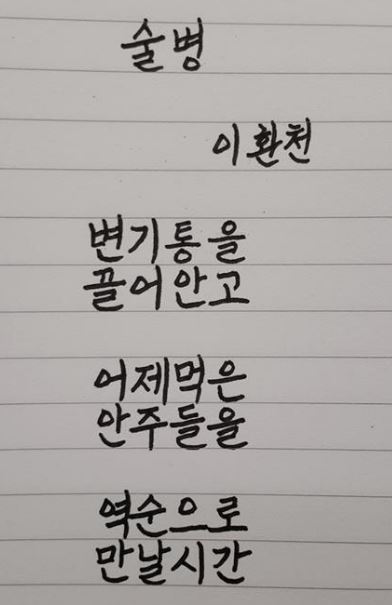 술병
이환천
변기통을
끌어안고
어제먹은
안주들을
역순으로
만날시간